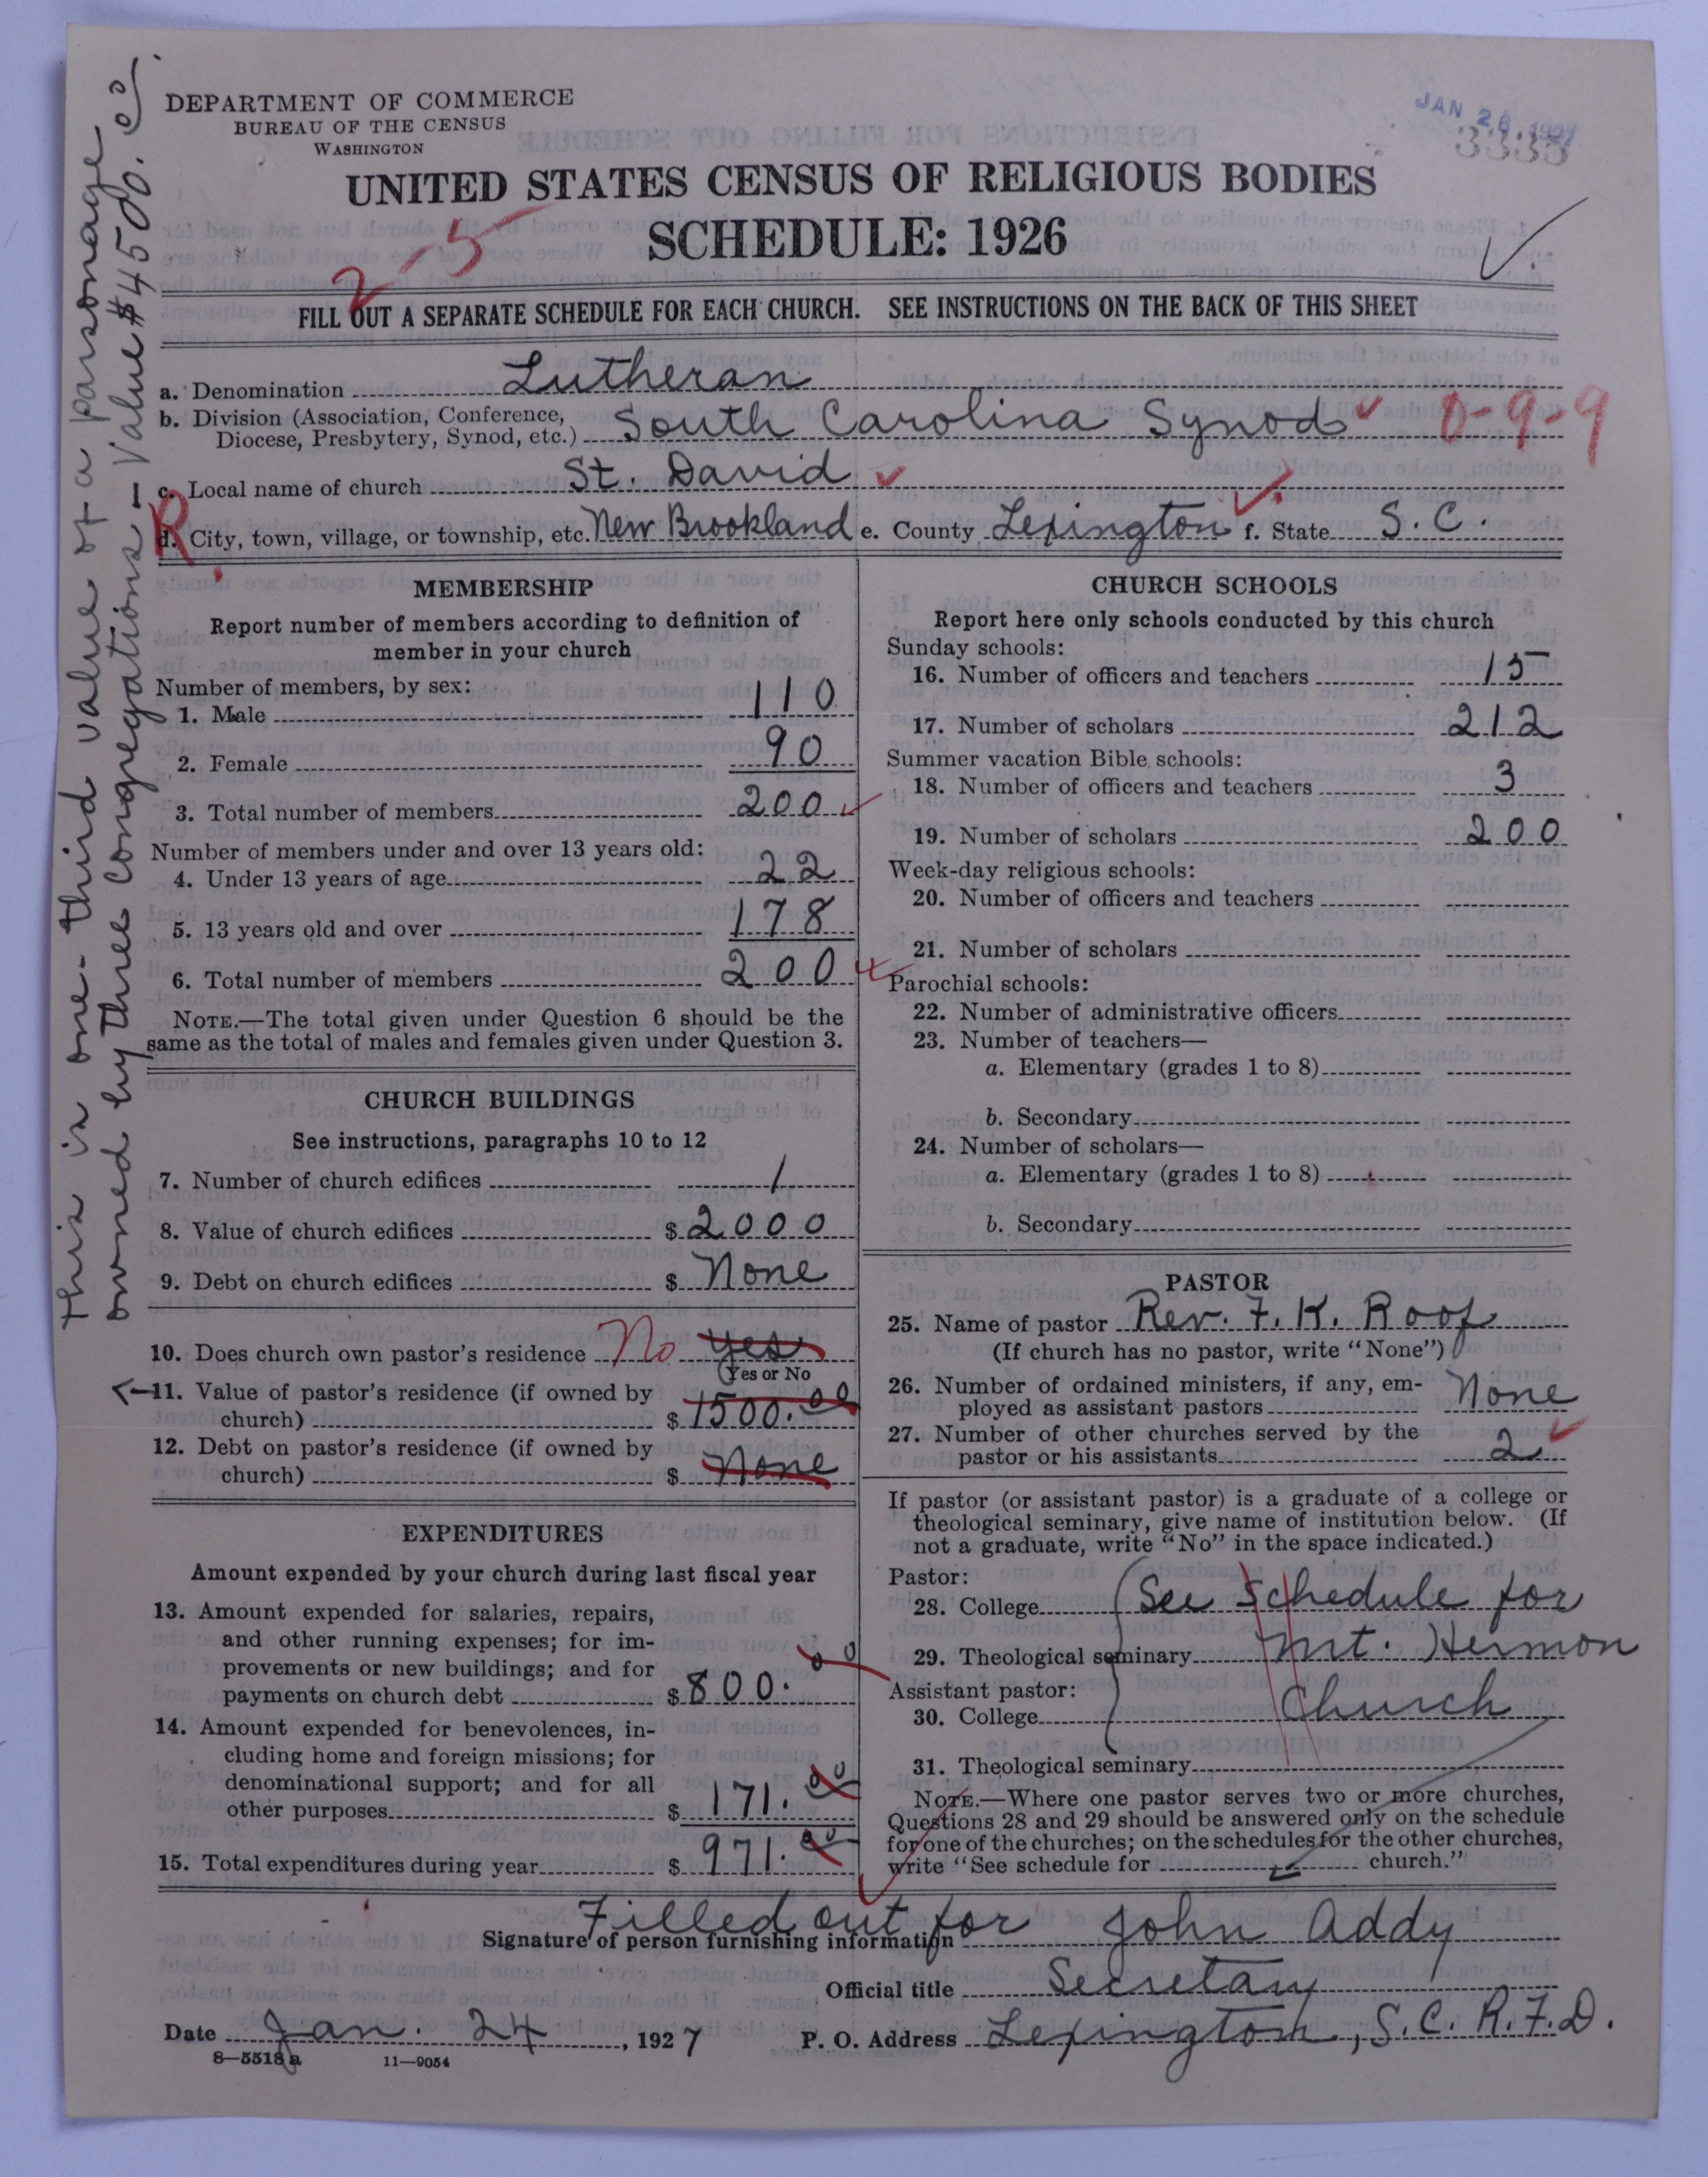 DEPARTMENT OF COMMERCE
BUREAU OF THE CENSUS
WASHINGTON
JAN 26 1927
3335
UNITED STATES CENSUS OF RELIGIOUS BODIES
SCHEDULE: 1926
2-5
FILL OUT A SEPARATE SCHEDULE FOR EACH CHURCH. SEE INSTRUCTIONS ON THE BACK OF THIS SHEET
a. Denomination Lutheran
b. Division (Association, Conference,
Diocese, Presbytery, Synod, etc.) South Carolina Synod 0-9-9
c. Local name of church St. David
R
d. City, town, village, or township, etc. New Brookland e. County Lexington f. State S.C.
This is one-third value of a parsonage
owned by three congregations - Value $4500.00.
MEMBERSHIP
Report number of members according to definition of
member in your church
Number of members, by sex:
1. Male 110
2. Female 90
3. Total number of members 200
Number of members under and over 13 years old:
4. Under 13 years of age 22
5. 13 years old and over 178
6. Total number of members 200
NOTE.—The total given under Question 6 should be the
same as the total of males and females given under Question 3.
CHURCH BUILDINGS
See instructions, paragraphs 10 to 12
7. Number of church edifices 1
8. Value of church edifices $2000
9. Debt on church edifices $ None
10. Does church own pastor's residence No Yes
Yes or No
11. Value of pastor's residence (if owned by
church) $1500.00
12. Debt on pastor's residence (if owned by
church) $ None
EXPENDITURES
Amount expended by your church during last fiscal year
13. Amount expended for salaries, repairs,
and other running expenses; for im-
provements or new buildings; and for
payments on church debt $800.00
14. Amount expended for benevolences, in-
cluding home and foreign missions; for
denominational support; and for all
other purposes $171.00
15. Total expenditures during year $971.00
CHURCH SCHOOLS
Report here only schools conducted by this church
Sunday schools:
16. Number of officers and teachers 15
17. Number of scholars 212
Summer vacation Bible schools:
18. Number of officers and teachers 3
19. Number of scholars 200
Week-day religious schools:
20. Number of officers and teachers
21. Number of scholars
Parochial schools:
22. Number of administrative officers
23. Number of teachers—
a. Elementary (grades 1 to 8)
b. Secondary
24. Number of scholars—
a. Elementary (grades 1 to 8)
b. Secondary
PASTOR
25. Name of pastor Rev. F. K. Roof
(If church has no pastor, write "None")
26. Number of ordained ministers, if any, em-
ployed as assistant pastors None
27. Number of other churches served by the
pastor or his assistants 2
If pastor (or assistant pastor) is a graduate of a college or
theological seminary, give name of institution below. (If
not a graduate, write "No" in the space indicated.)
Pastor:
28. College (See Schedule for
29. Theological seminary Mt. Hermon
Assistant pastor:
30. College Church
31. Theological seminary
NOTE.—Where one pastor serves two or more churches,
Questions 28 and 29 should be answered only on the schedule
for one of the churches; on the schedules for the other churches,
write "See schedule for church."
Filled out for John Addy
Signature of person furnishing information
Official title Secretary
Date Jan. 24, 1927 P. O. Address Lexington, S.C. R.F.D.
8-5518a 11-9054